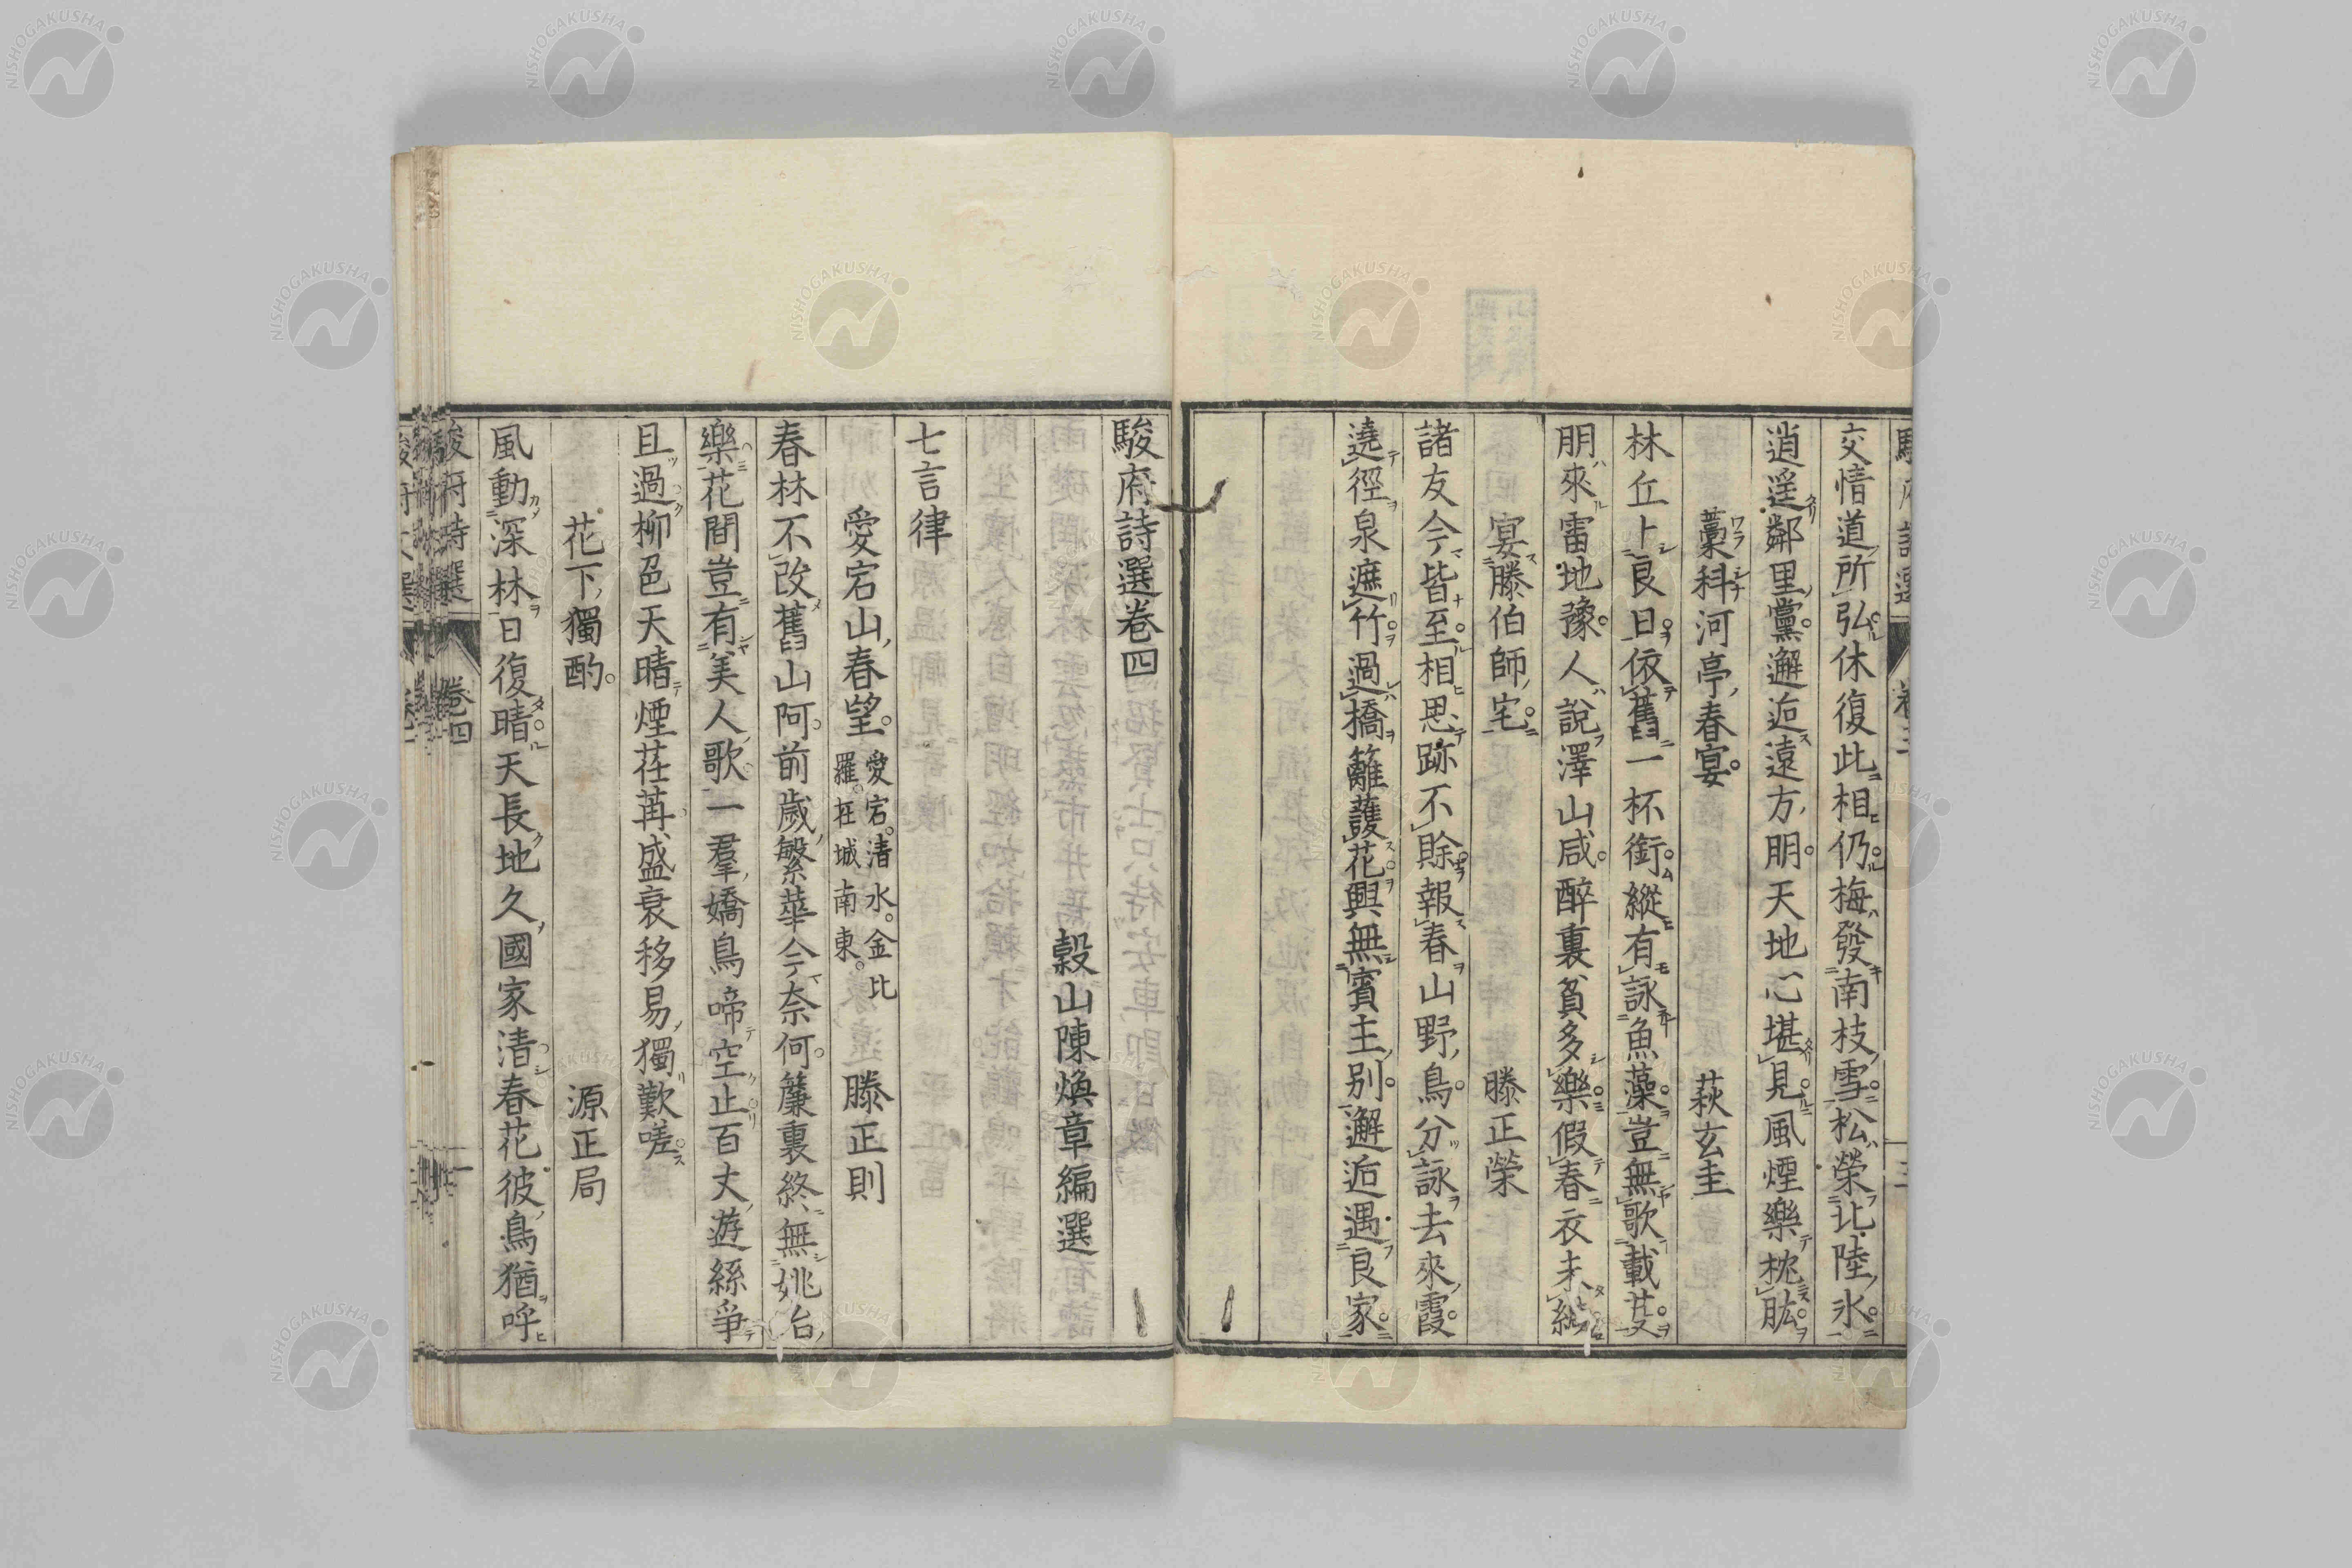 交情道所弘休復此相仍梅發南枝雪松榮北陸氷
逍遥鄰里黨邂逅遠方朋天地心堪見風煙樂枕肱
藁科河亭春宴 萩玄圭
林丘卜良日依舊一杯銜縱有詠魚藻豈無歌載芟
朋來雷地豫人說澤山咸醉裏貧多樂假春衣未
宴滕伯師宅 滕正榮
諸友今皆至相思跡不賖報春山野鳥分詠去來霞
遶徑泉遮竹過橋籬護花興無賓主別邂逅遇良家
駿府詩選卷四
穀山陳煥章編選
七言律
愛宕山春望 愛宕清水金比羅在城南東 滕正則
春林不改舊山阿前歲繁華今奈何簾裏終無姚冶
樂花間豈有美人歌一羣嬌鳥啼空止百丈遊絲爭
且過柳色天晴煙荏苒盛衰移易獨歎嗟
花下獨酌 源正局
風動深林日復晴天長地久國家清春花彼鳥猶呼
駿府詩選 卷四 一
NISHOGAKUSHA